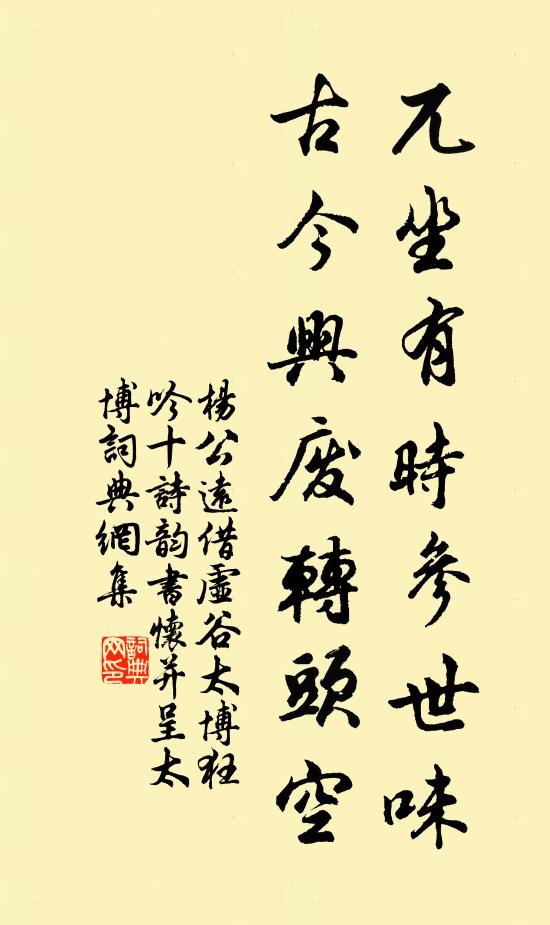 兀坐有時參世味
古今興廢轉頭空
楊公遠借虛谷太博狂
吟十詩韵書懷并呈太
博詞典網集
詞典
网印